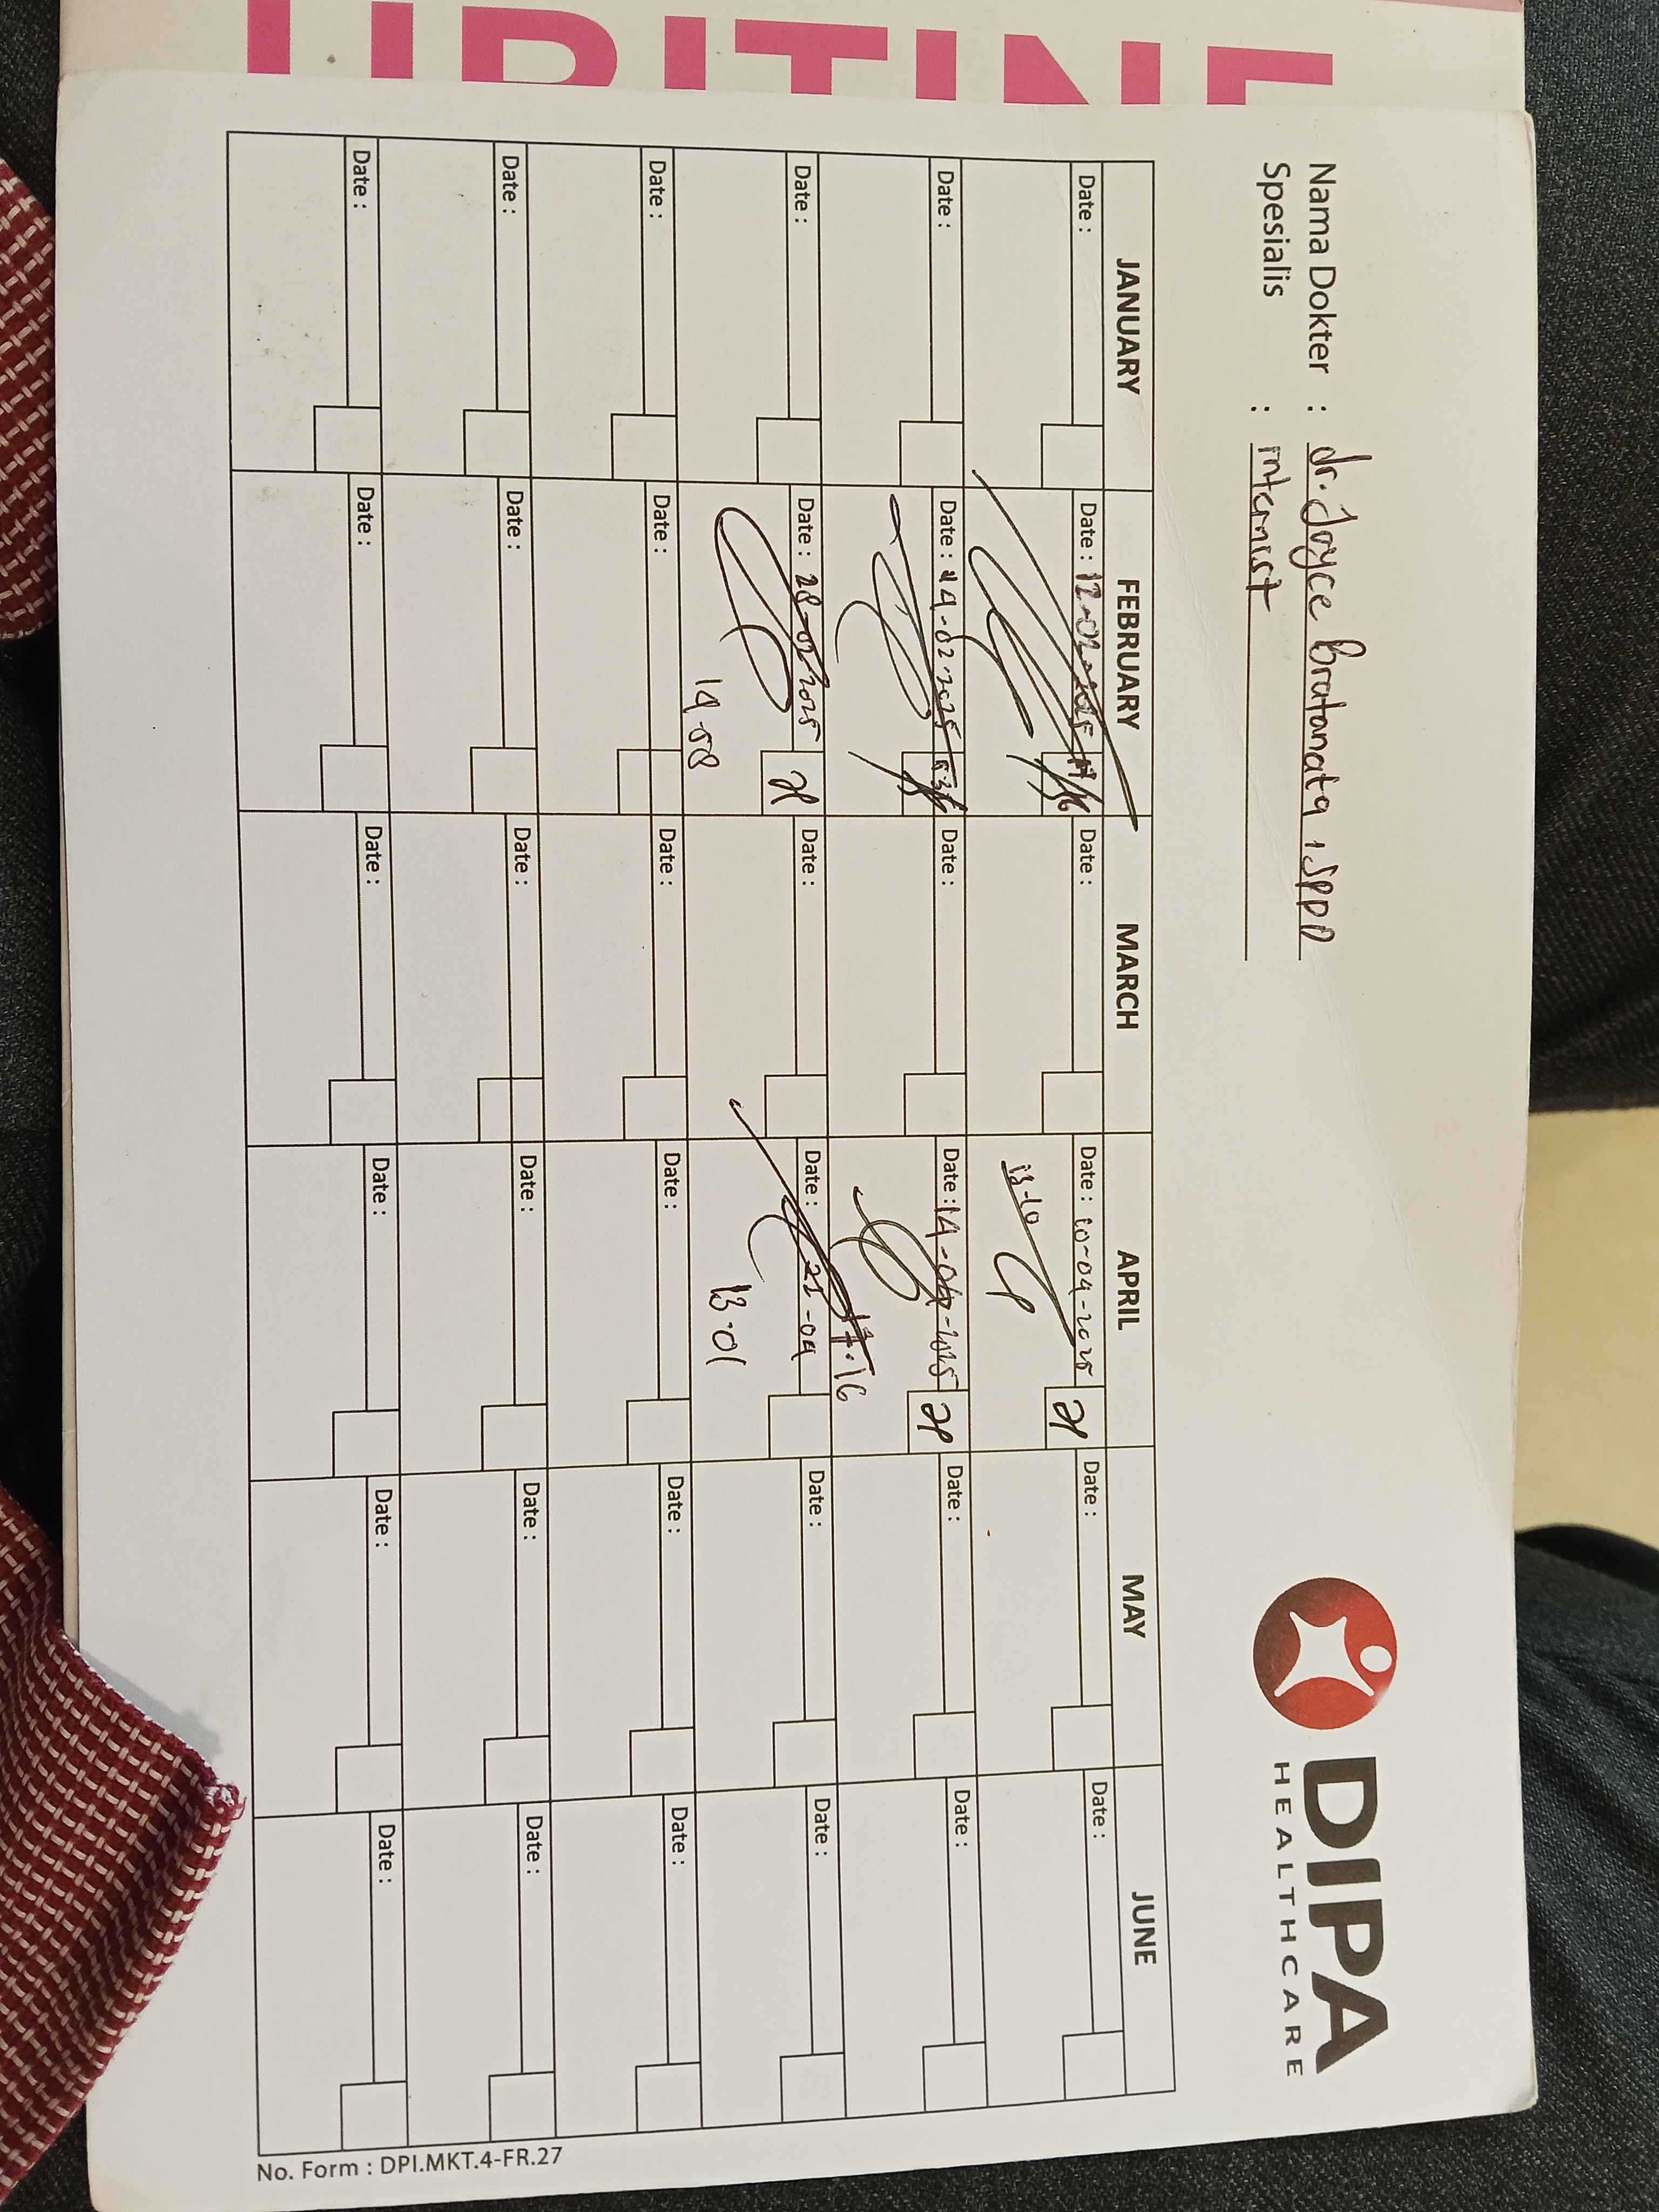 URITINE
Nama Dokter : dr. Joyce Bratanata, SPPD
Spesialis : internist
DIPA
HEALTHCARE
JANUARY FEBRUARY MARCH APRIL MAY JUNE
Date : Date : 12-02-2025 Date : Date : 10-04-2025 Date : Date :
13-10
Date : Date : 14-02-2025 Date : Date : 14-04-2025 Date : Date :
17.16
Date : Date : 28-02-2025 Date : Date : 21-04 Date : Date :
14-58 13.01
Date : Date : Date : Date : Date : Date :
Date : Date : Date : Date : Date : Date :
Date : Date : Date : Date : Date : Date :
No. Form : DPI.MKT.4-FR.27